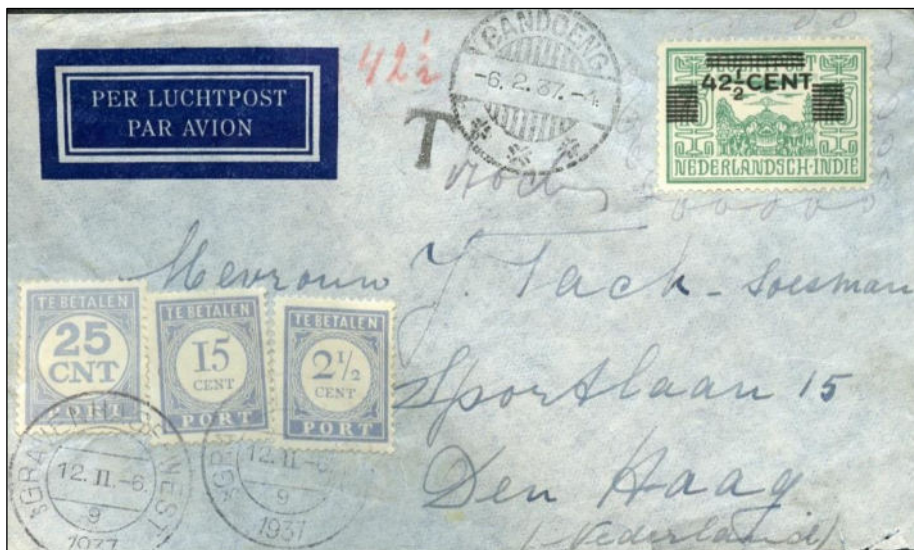 PER LUCHTPOST
PAR AVION
42½
T
BANDOENG
-6.2.37.-4.
LUCHTPOST
42½ CENT
NEDERLANDSCH-INDIE
Mevrouw J. Tack - Soesman
Sportlaan 15
Den Haag
(Nederland)
TE BETALEN
25
CNT
PORT
TE BETALEN
15
CENT
PORT
TE BETALEN
2½
CENT
PORT
12.II.-6.
9
1937
12.II.-6
9
1937